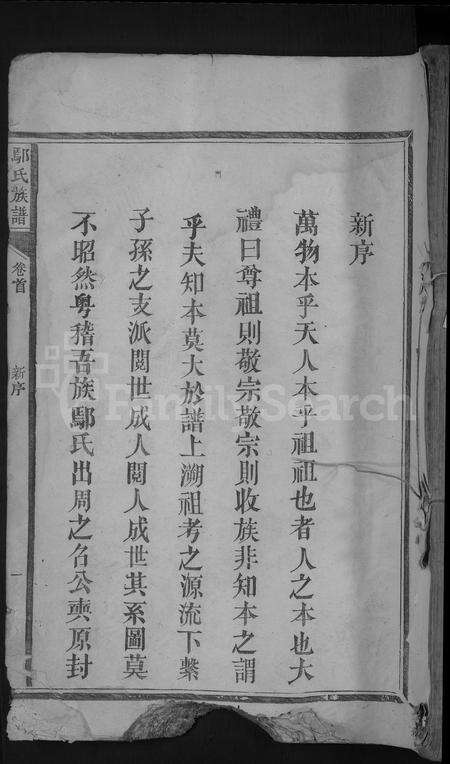 新序
萬物本乎天人本乎祖祖也者人之本也大
禮曰尊祖則敬宗敬宗則收族非知本之謂
乎夫知本莫大於譜上溯祖考之源流下繫
子孫之支派閱世成人閱人成世其系圖莫
不昭然粵稽吾族鄢氏出周之召公奭原封
鄢氏族譜
卷首
新序
一
FamilySearch